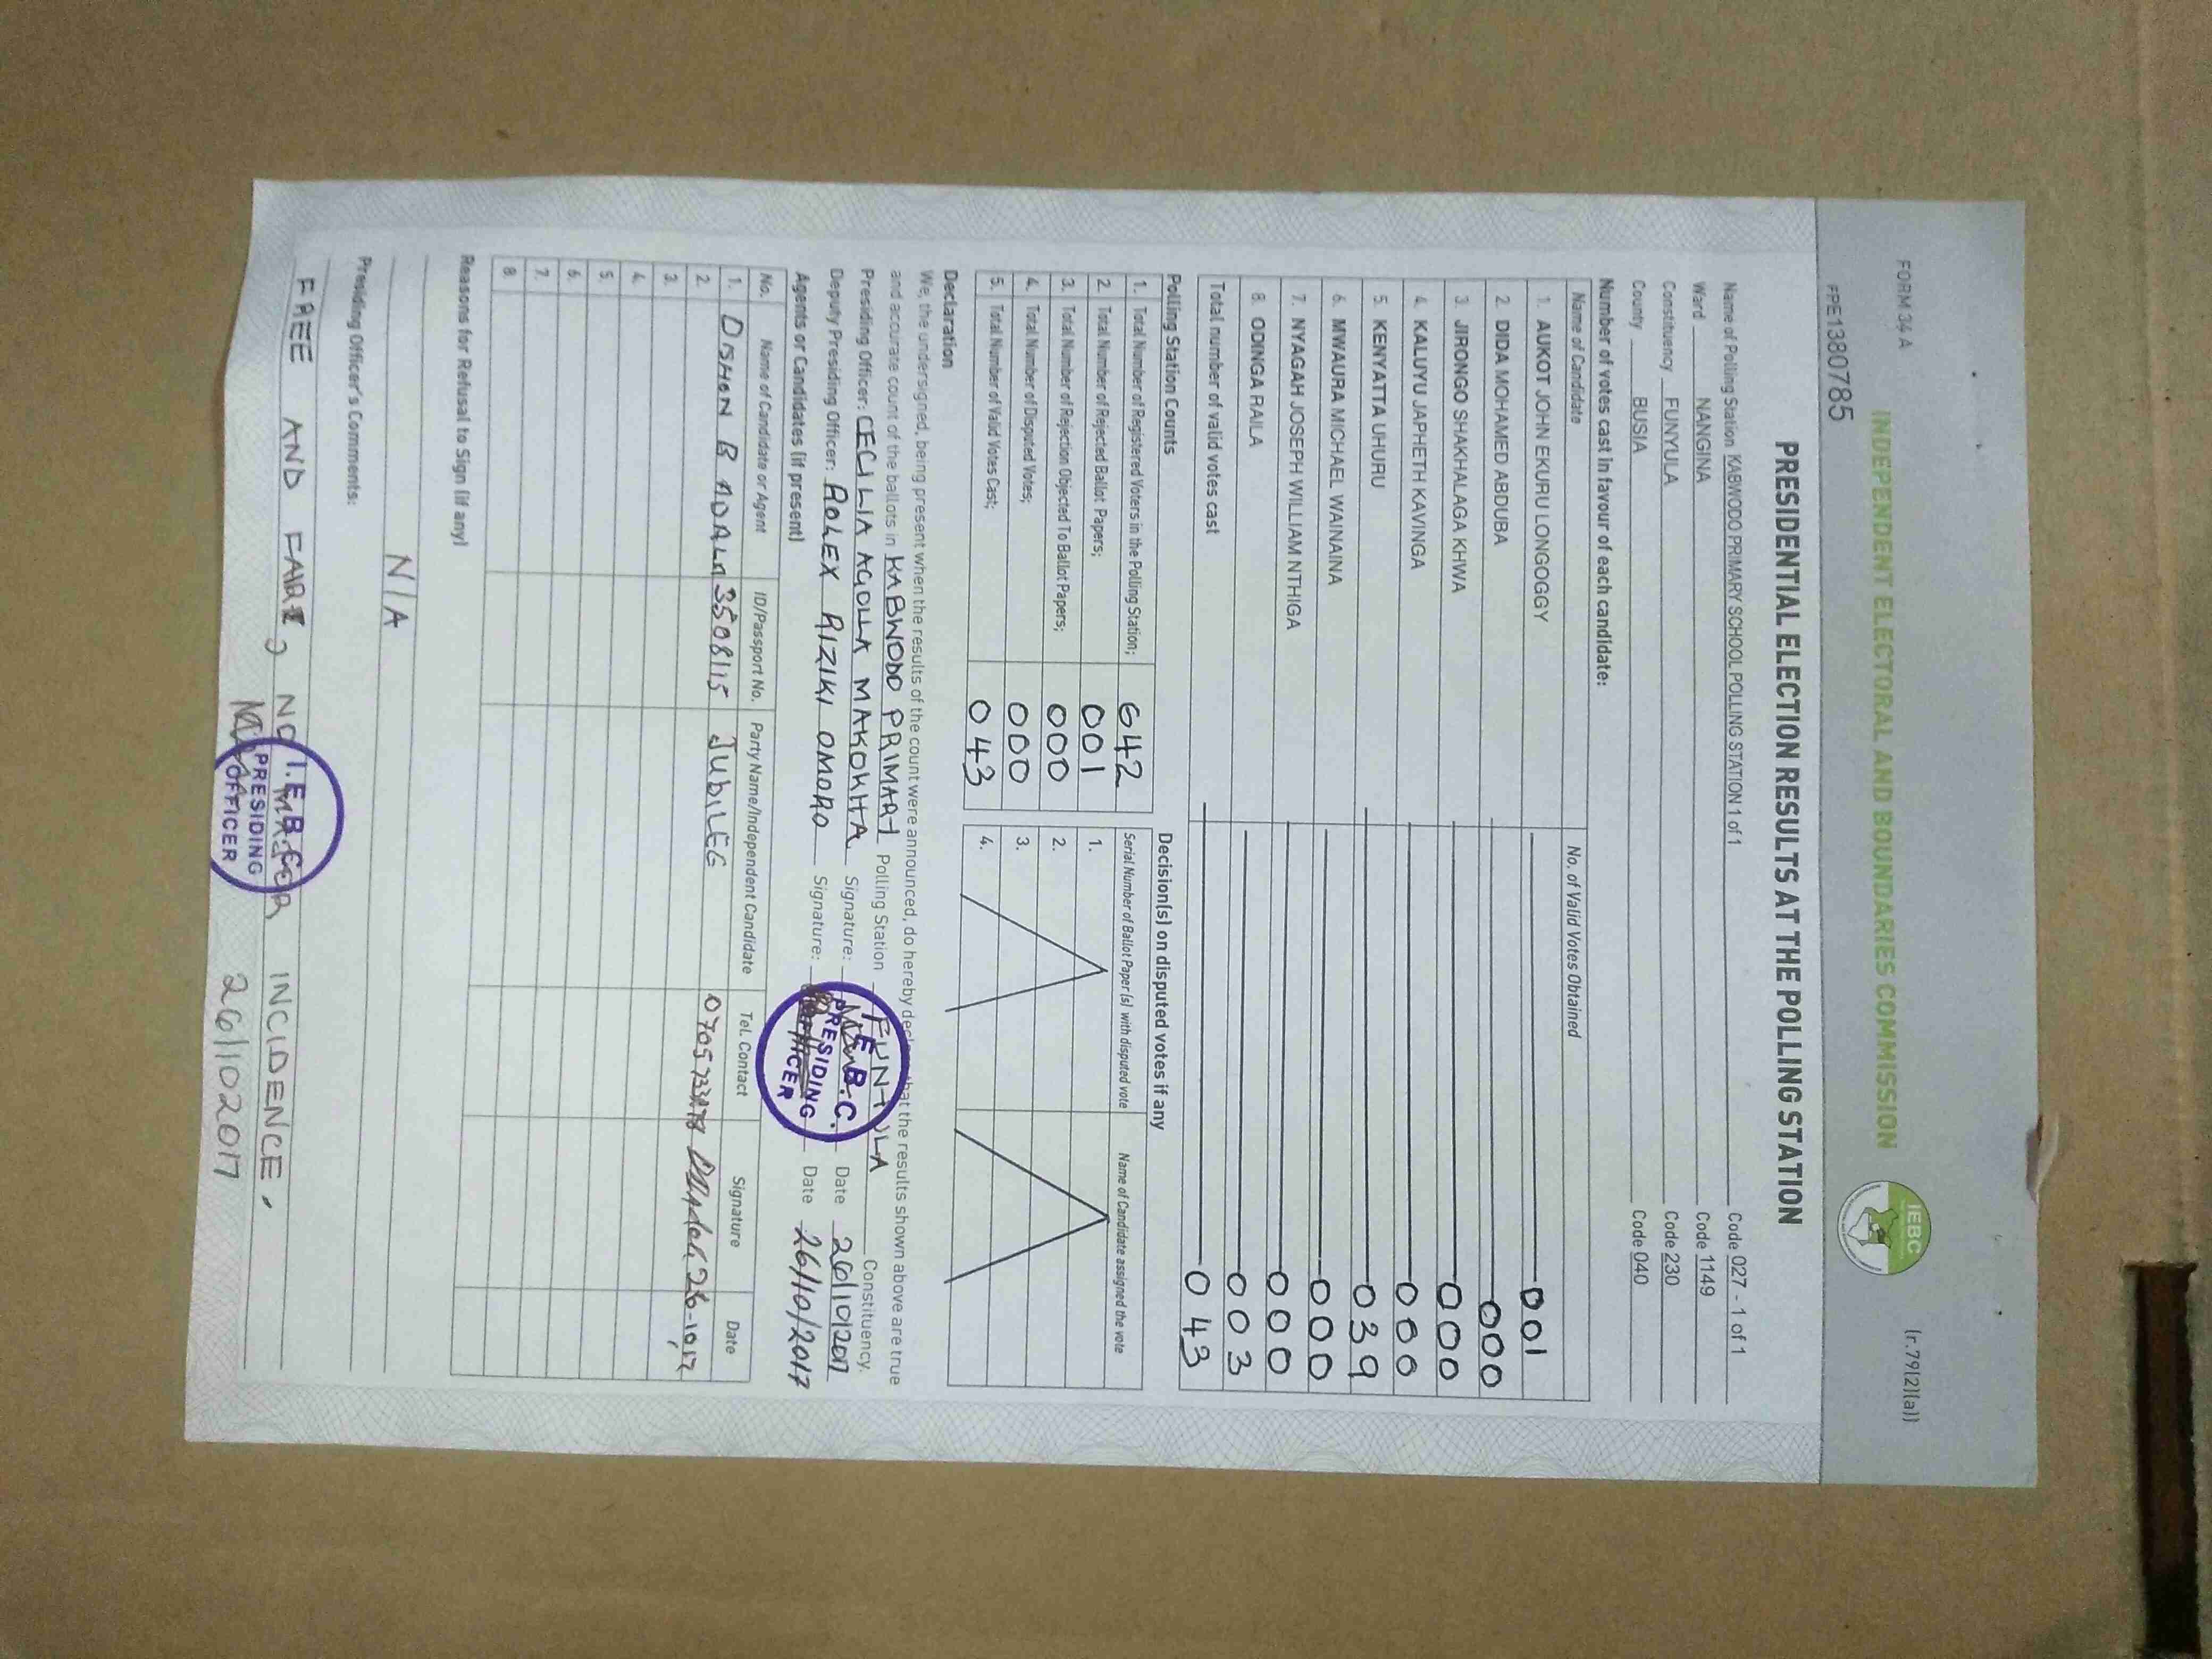 FORM 34 A
(r.79(2)(a))
INDEPENDENT ELECTORAL AND BOUNDARIES COMMISSION
IEBC
FPE1380785
PRESIDENTIAL ELECTION RESULTS AT THE POLLING STATION
Name of Polling Station KABWODO PRIMARY SCHOOL POLLING STATION 1 of 1 Code 027 - 1 of 1
Ward NANGINA Code 1149
Constituency FUNYULA Code 230
County BUSIA Code 040
Number of votes cast in favour of each candidate:
Name of Candidate No. of Valid Votes Obtained
1. AUKOT JOHN EKURU LONGOGGY 001
2. DIDA MOHAMED ABDUBA 000
3. JIRONGO SHAKHALAGA KHWA 000
4. KALUYU JAPHETH KAVINGA 000
5. KENYATTA UHURU 039
6. MWAURA MICHAEL WAINAINA 000
7. NYAGAH JOSEPH WILLIAM NTHIGA 000
8. ODINGA RAILA 003
Total number of valid votes cast 043
Polling Station Counts
1. Total Number of Registered Voters in the Polling Station; 642
2. Total Number of Rejected Ballot Papers; 001
3. Total Number of Rejection Objected To Ballot Papers; 000
4. Total Number of Disputed Votes; 000
5. Total Number of Valid Votes Cast; 043
Decision(s) on disputed votes if any
Serial Number of Ballot Paper (s) with disputed vote Name of Candidate assigned the vote
1.
2.
3.
4.
Declaration
We, the undersigned, being present when the results of the count were announced, do hereby that the results shown above are true
and accurate count of the ballots in KABWODO PRIMARY Polling Station Constituency.
Presiding Officer: CECILIA AGOLLA MAKOKHA Signature: Date 26/10/2017
Deputy Presiding Officer: ROLEX RIZIKI OMORO Signature: Date 26/10/2017
I.E.B.C.
PRESIDING
OFFICER
Agents or Candidates (if present)
No. Name of Candidate or Agent ID/Passport No. Party Name/Independent Candidate Tel. Contact Signature Date
1. 3508115 JUBILEE 26-10-17
2.
3.
4.
5.
6.
7.
8.
Reasons for Refusal to Sign (if any)
N/A
Presiding Officer's Comments:
FREE AND FAIR, NO INCIDENCE.
26/10/2017
I.E.B.C.
PRESIDING
OFFICER